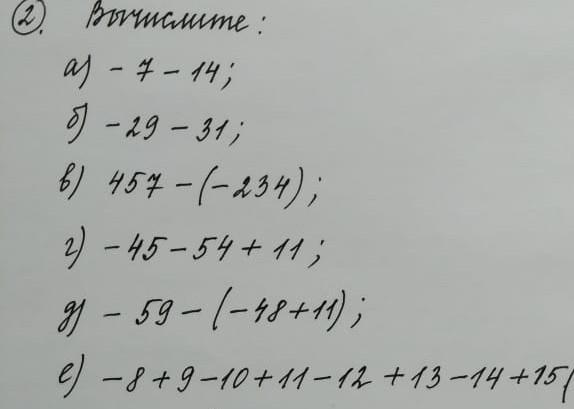 2. Вычислите:
а) - 7 - 14;
б) - 29 - 31;
в) 457 - (- 234);
г) - 45 - 54 + 11;
д) - 59 - (- 48 + 11);
е) - 8 + 9 - 10 + 11 - 12 + 13 - 14 + 15(